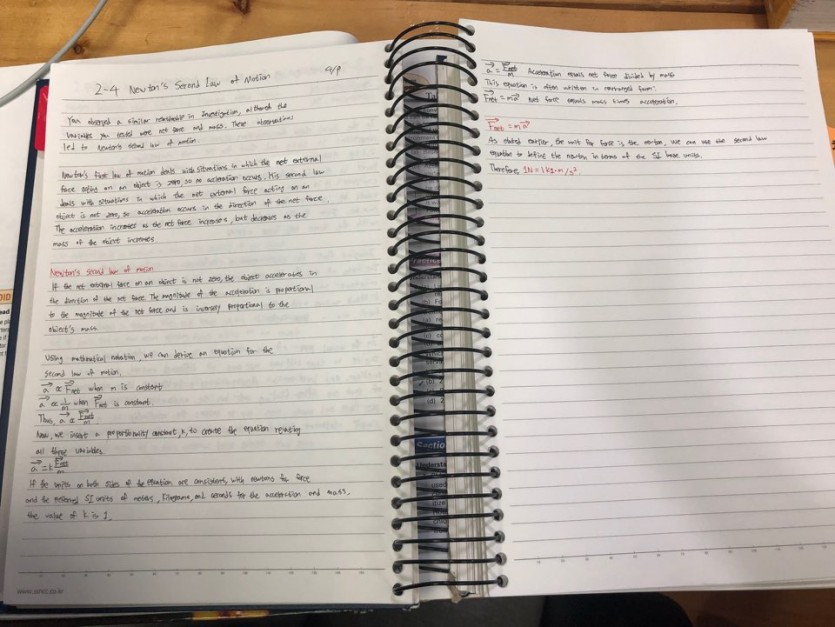 2-4 Newton's Second Law of Motion
4/9
You observed a similar relationship in Investigation, although the
variables you tested were net force and mass. These observation
led to Newton's second law of motion.
Newton's first law of motion deals with situations in which the net external
force acting on an object is zero, so no acceleration occurs. His second law
deals with situations in which the net external force acting on an
object is not zero, so acceleration occurs in the direction of the net force.
The acceleration increases as the net force increases, but decreases as the
mass of the object increases
Newton's second law of motion
If the net external force on an object is not zero, the object accelerates in
the direction of the net force. The magnitude of the acceleration is proportional
to the magnitude of the net force and is inversely proportional to the
object's mass.
Using mathematical notation, we can derive an equation for the
second law of motion.
a⃗ ∝ F⃗net when m is constant
a⃗ ∝ 1/m when F⃗net is constant.
Thus, a⃗ ∝ F⃗net/m
Now, we insert a proportionality constant, k, to create the equation relating
all these variables
a⃗ = k F⃗net/m
If the units on both sides of the equation are consistent, with newtons for force
and the preferred SI units of meters, kilograms, and seconds for the acceleration and mass,
the value of k is 1.
a⃗ = F⃗net/m Acceleration equals net force divided by mass
This equation is often written in rearranged form:
F⃗net = ma⃗ Net force equals mass times acceleration.
F⃗net = ma⃗
As stated earlier, the unit for force is the newton, we can use the second law
equation to define the newton in terms of the SI base units.
Therefore, 1N = 1kg·m/s²
Sectio
Understa